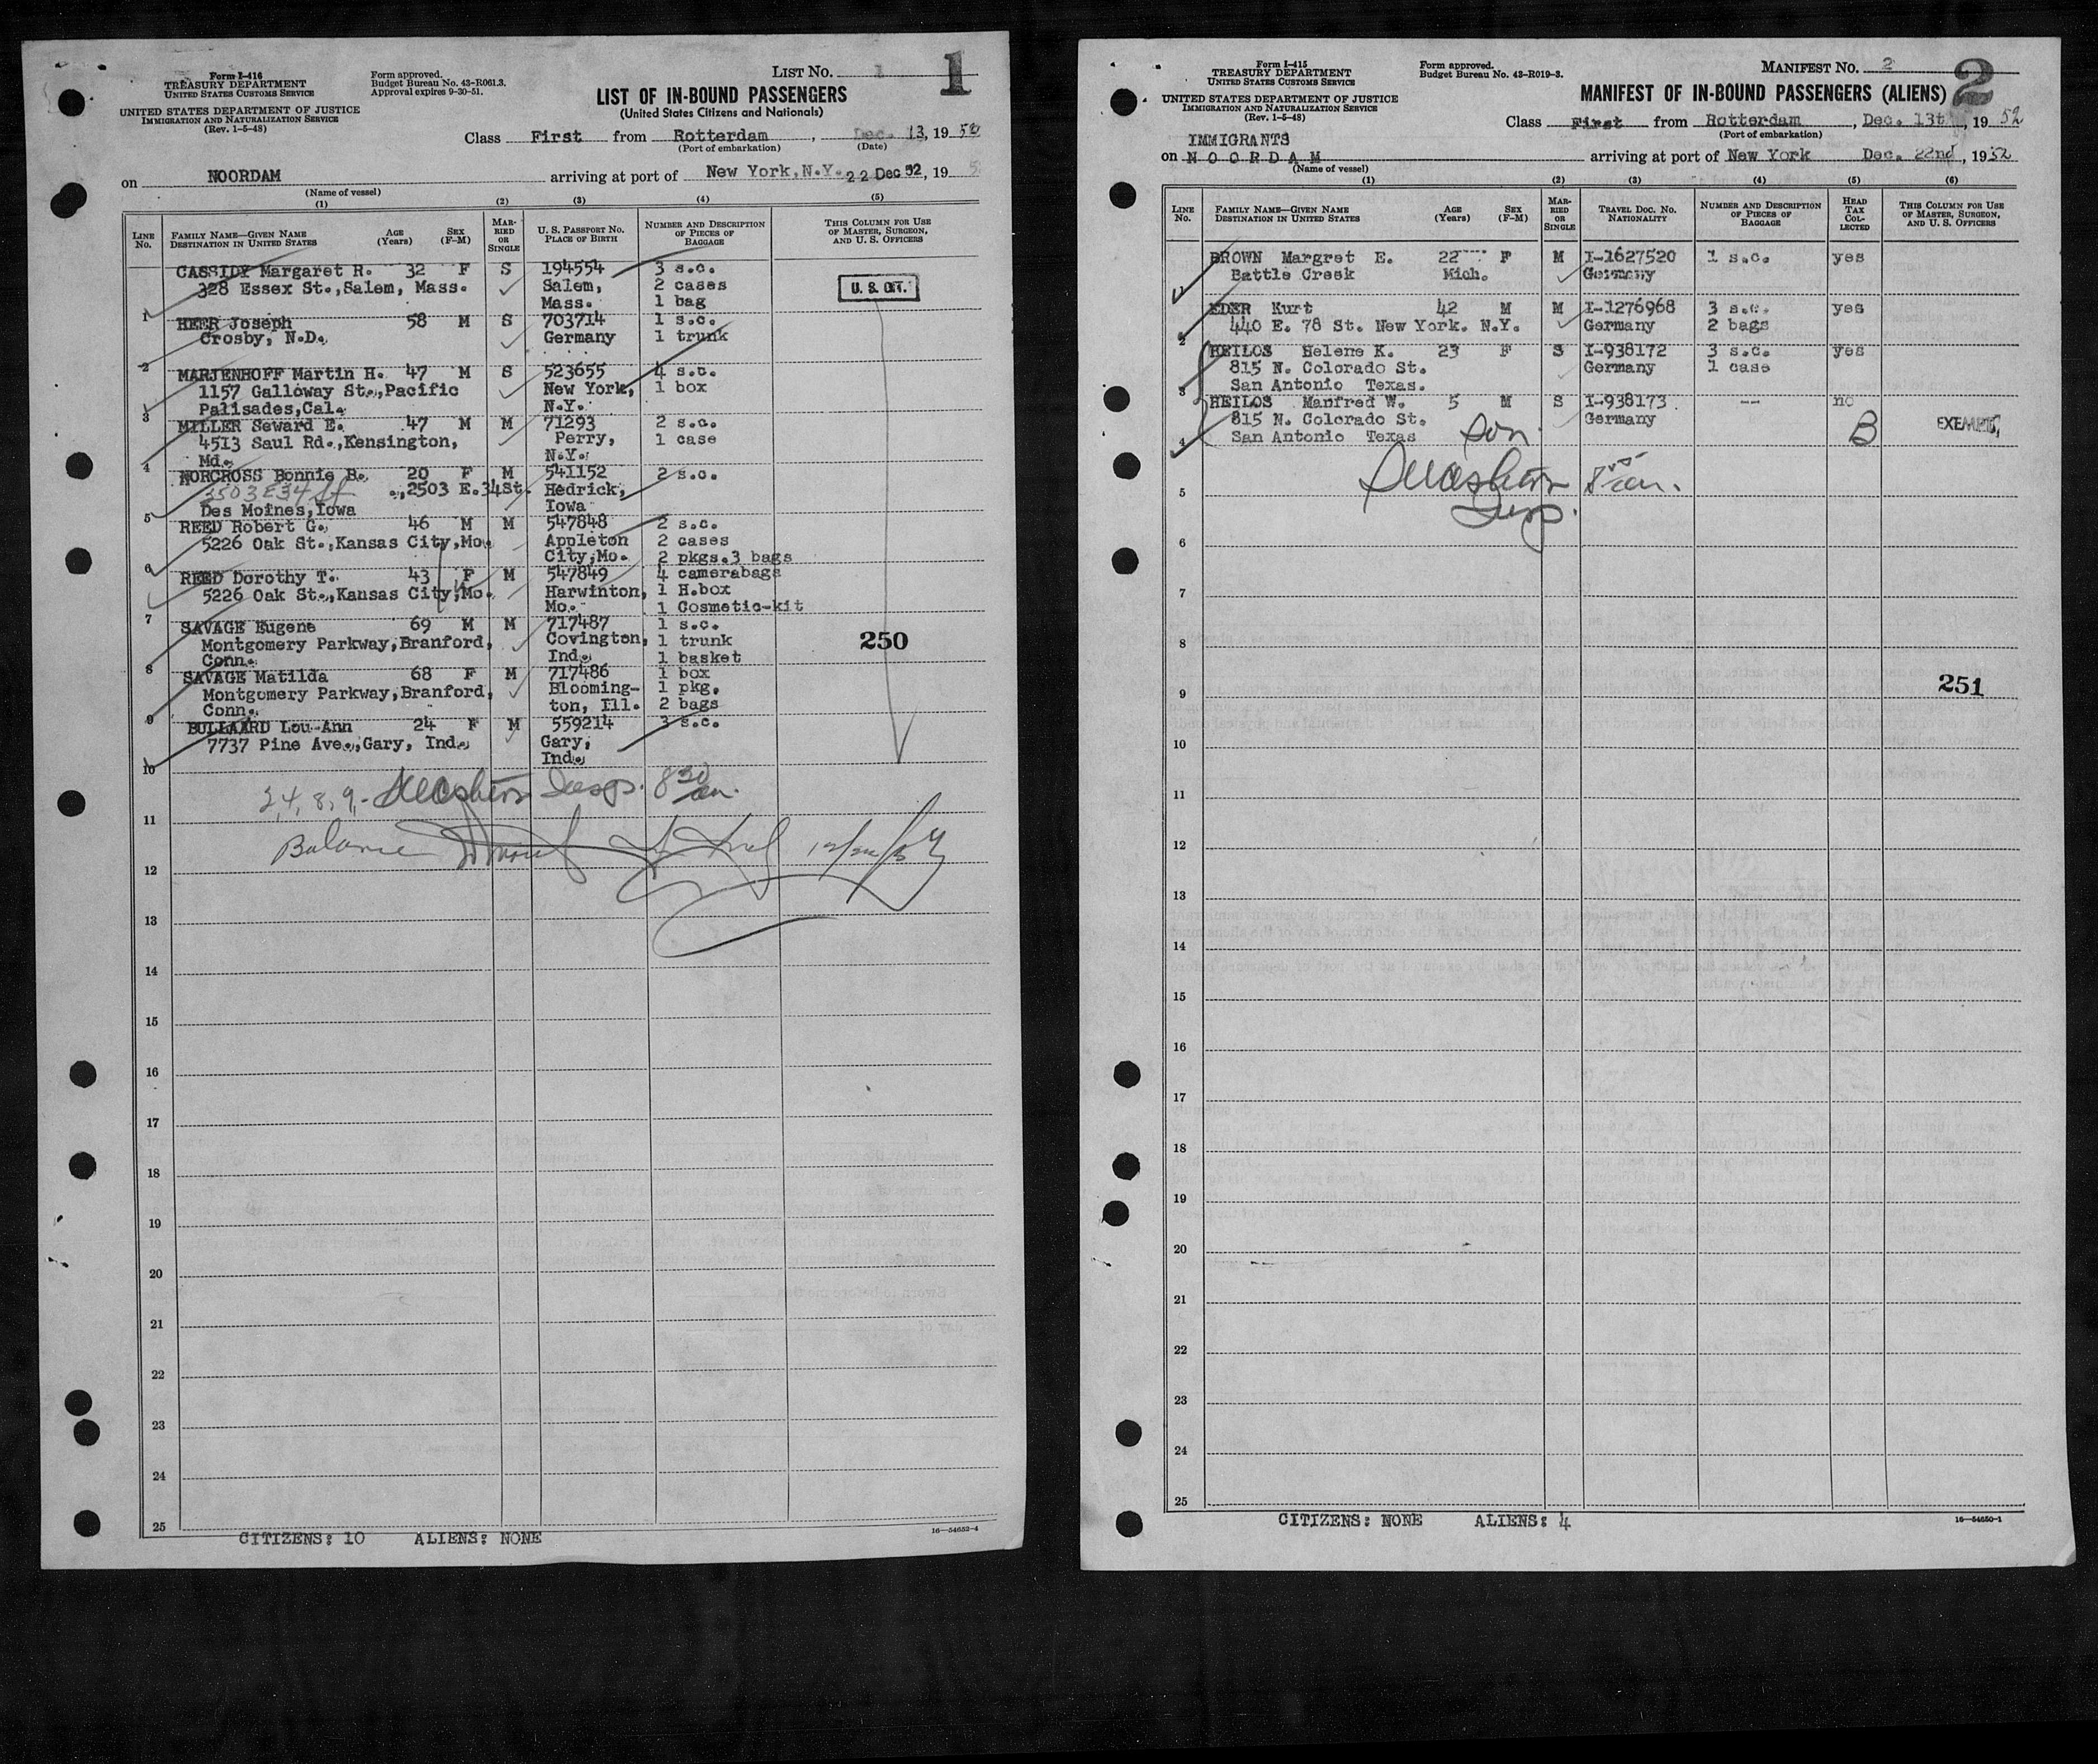 Form I-416
TREASURY DEPARTMENT
UNITED STATES CUSTOMS SERVICE
UNITED STATES DEPARTMENT OF JUSTICE
IMMIGRATION AND NATURALIZATION SERVICE
(Rev. 1-5-48)
Form approved.
Budget Bureau No. 43-R061.3.
Approval expires 9-30-51.
LIST NO. 1
1
LIST OF IN-BOUND PASSENGERS
(United States Citizens and Nationals)
Class First from Rotterdam, Dec. 13, 1952
(Port of embarkation) (Date)
on NOORDAM arriving at port of New York, N.Y. 22 Dec 52, 19
(Name of vessel)
(1) (2) (3) (4) (5)
LINE NO. FAMILY NAME—GIVEN NAME DESTINATION IN UNITED STATES AGE (Years) SEX (F-M) MARRIED OR SINGLE U. S. PASSPORT NO. PLACE OF BIRTH NUMBER AND DESCRIPTION OF PIECES OF BAGGAGE THIS COLUMN FOR USE OF MASTER, SURGEON, AND U. S. OFFICERS
CASSIDY Margaret R. 32 F S 194554 3 s.c.
328 Essex St., Salem, Mass. Salem, 2 cases U. S. CIT.
1 Mass. 1 bag
HEER Joseph 58 M S 703714 1 s.c.
Crosby, N.D. Germany 1 trunk
2
MARJENHOFF Martin H. 47 M S 523655 4 s.c.
1157 Galloway St., Pacific New York, 1 box
3 Palisades, Cal. N.Y.
MILLER Seward E. 47 M M 71293 2 s.c.
4513 Saul Rd., Kensington, Perry, 1 case
4 Md. N.Y.
NORCROSS Bonnie B. 20 F M 541152 2 s.c.
2503 E 34 St ., 2503 E. 34 St. Hedrick,
5 Des Moines, Iowa Iowa
REED Robert G. 46 M M 547848 2 s.c.
5226 Oak St., Kansas City, Mo. Appleton 2 cases
6 City, Mo. 2 pkgs. 3 bags
REED Dorothy T. 43 F M 547849 4 camerabags
5226 Oak St., Kansas City, Mo. Harwinton, 1 H.box
7 Mo. 1 Cosmetic-kit
SAVAGE Eugene 69 M M 717487 1 s.c.
Montgomery Parkway, Branford, Covington, 1 trunk 250
8 Conn. Ind. 1 basket
SAVAGE Matilda 68 F M 717486 1 box
Montgomery Parkway, Branford, Blooming- 1 pkg.
9 Conn. ton, Ill. 2 bags
BULLAARD Lou-Ann 24 F M 559214 3 s.c.
7737 Pine Ave., Gary, Ind. Gary,
10 Ind.
2, 4, 8, 9, - Insp. 8 30 am.
11
Balance 12/22/52
12
13
14
15
16
17
18
19
20
21
22
23
24
25
CITIZENS: 10 ALIENS: NONE
16—54652-4
Form I-415
TREASURY DEPARTMENT
UNITED STATES CUSTOMS SERVICE
UNITED STATES DEPARTMENT OF JUSTICE
IMMIGRATION AND NATURALIZATION SERVICE
(Rev. 1-5-48)
Form approved.
Budget Bureau No. 43-R019-3.
MANIFEST NO. 2
2
MANIFEST OF IN-BOUND PASSENGERS (ALIENS)
Class First from Rotterdam, Dec. 13t, 1952
(Port of embarkation)
IMMIGRANTS
on NOORDAM arriving at port of New York Dec. 22nd, 1952
(Name of vessel)
(1) (2) (3) (4) (5) (6)
LINE NO. FAMILY NAME—GIVEN NAME DESTINATION IN UNITED STATES AGE (Years) SEX (F-M) MARRIED OR SINGLE TRAVEL DOC. NO. NATIONALITY NUMBER AND DESCRIPTION OF PIECES OF BAGGAGE HEAD TAX COLLECTED THIS COLUMN FOR USE OF MASTER, SURGEON, AND U. S. OFFICERS
BROWN Margret E. 22 F M I-1627520 1 s.c. yes
Battle Creek Mich. Germany
1
EDER Kurt 42 M M I-1276968 3 s.c. yes
440 E. 78 St. New York. N.Y. Germany 2 bags
2
HEILOS Helene K. 23 F S I-938172 3 s.c. yes
815 N. Colorado St. Germany 1 case
3 San Antonio Texas.
HEILOS Manfred W. 5 M S I-938173 -- no
815 N. Colorado St. Germany EXEMPT
4 San Antonio Texas Son B
5
Insp.
6
7
8
9 251
10
11
12
13
14
15
16
17
18
19
20
21
22
23
24
25
CITIZENS: NONE ALIENS: 4
16—54650-1